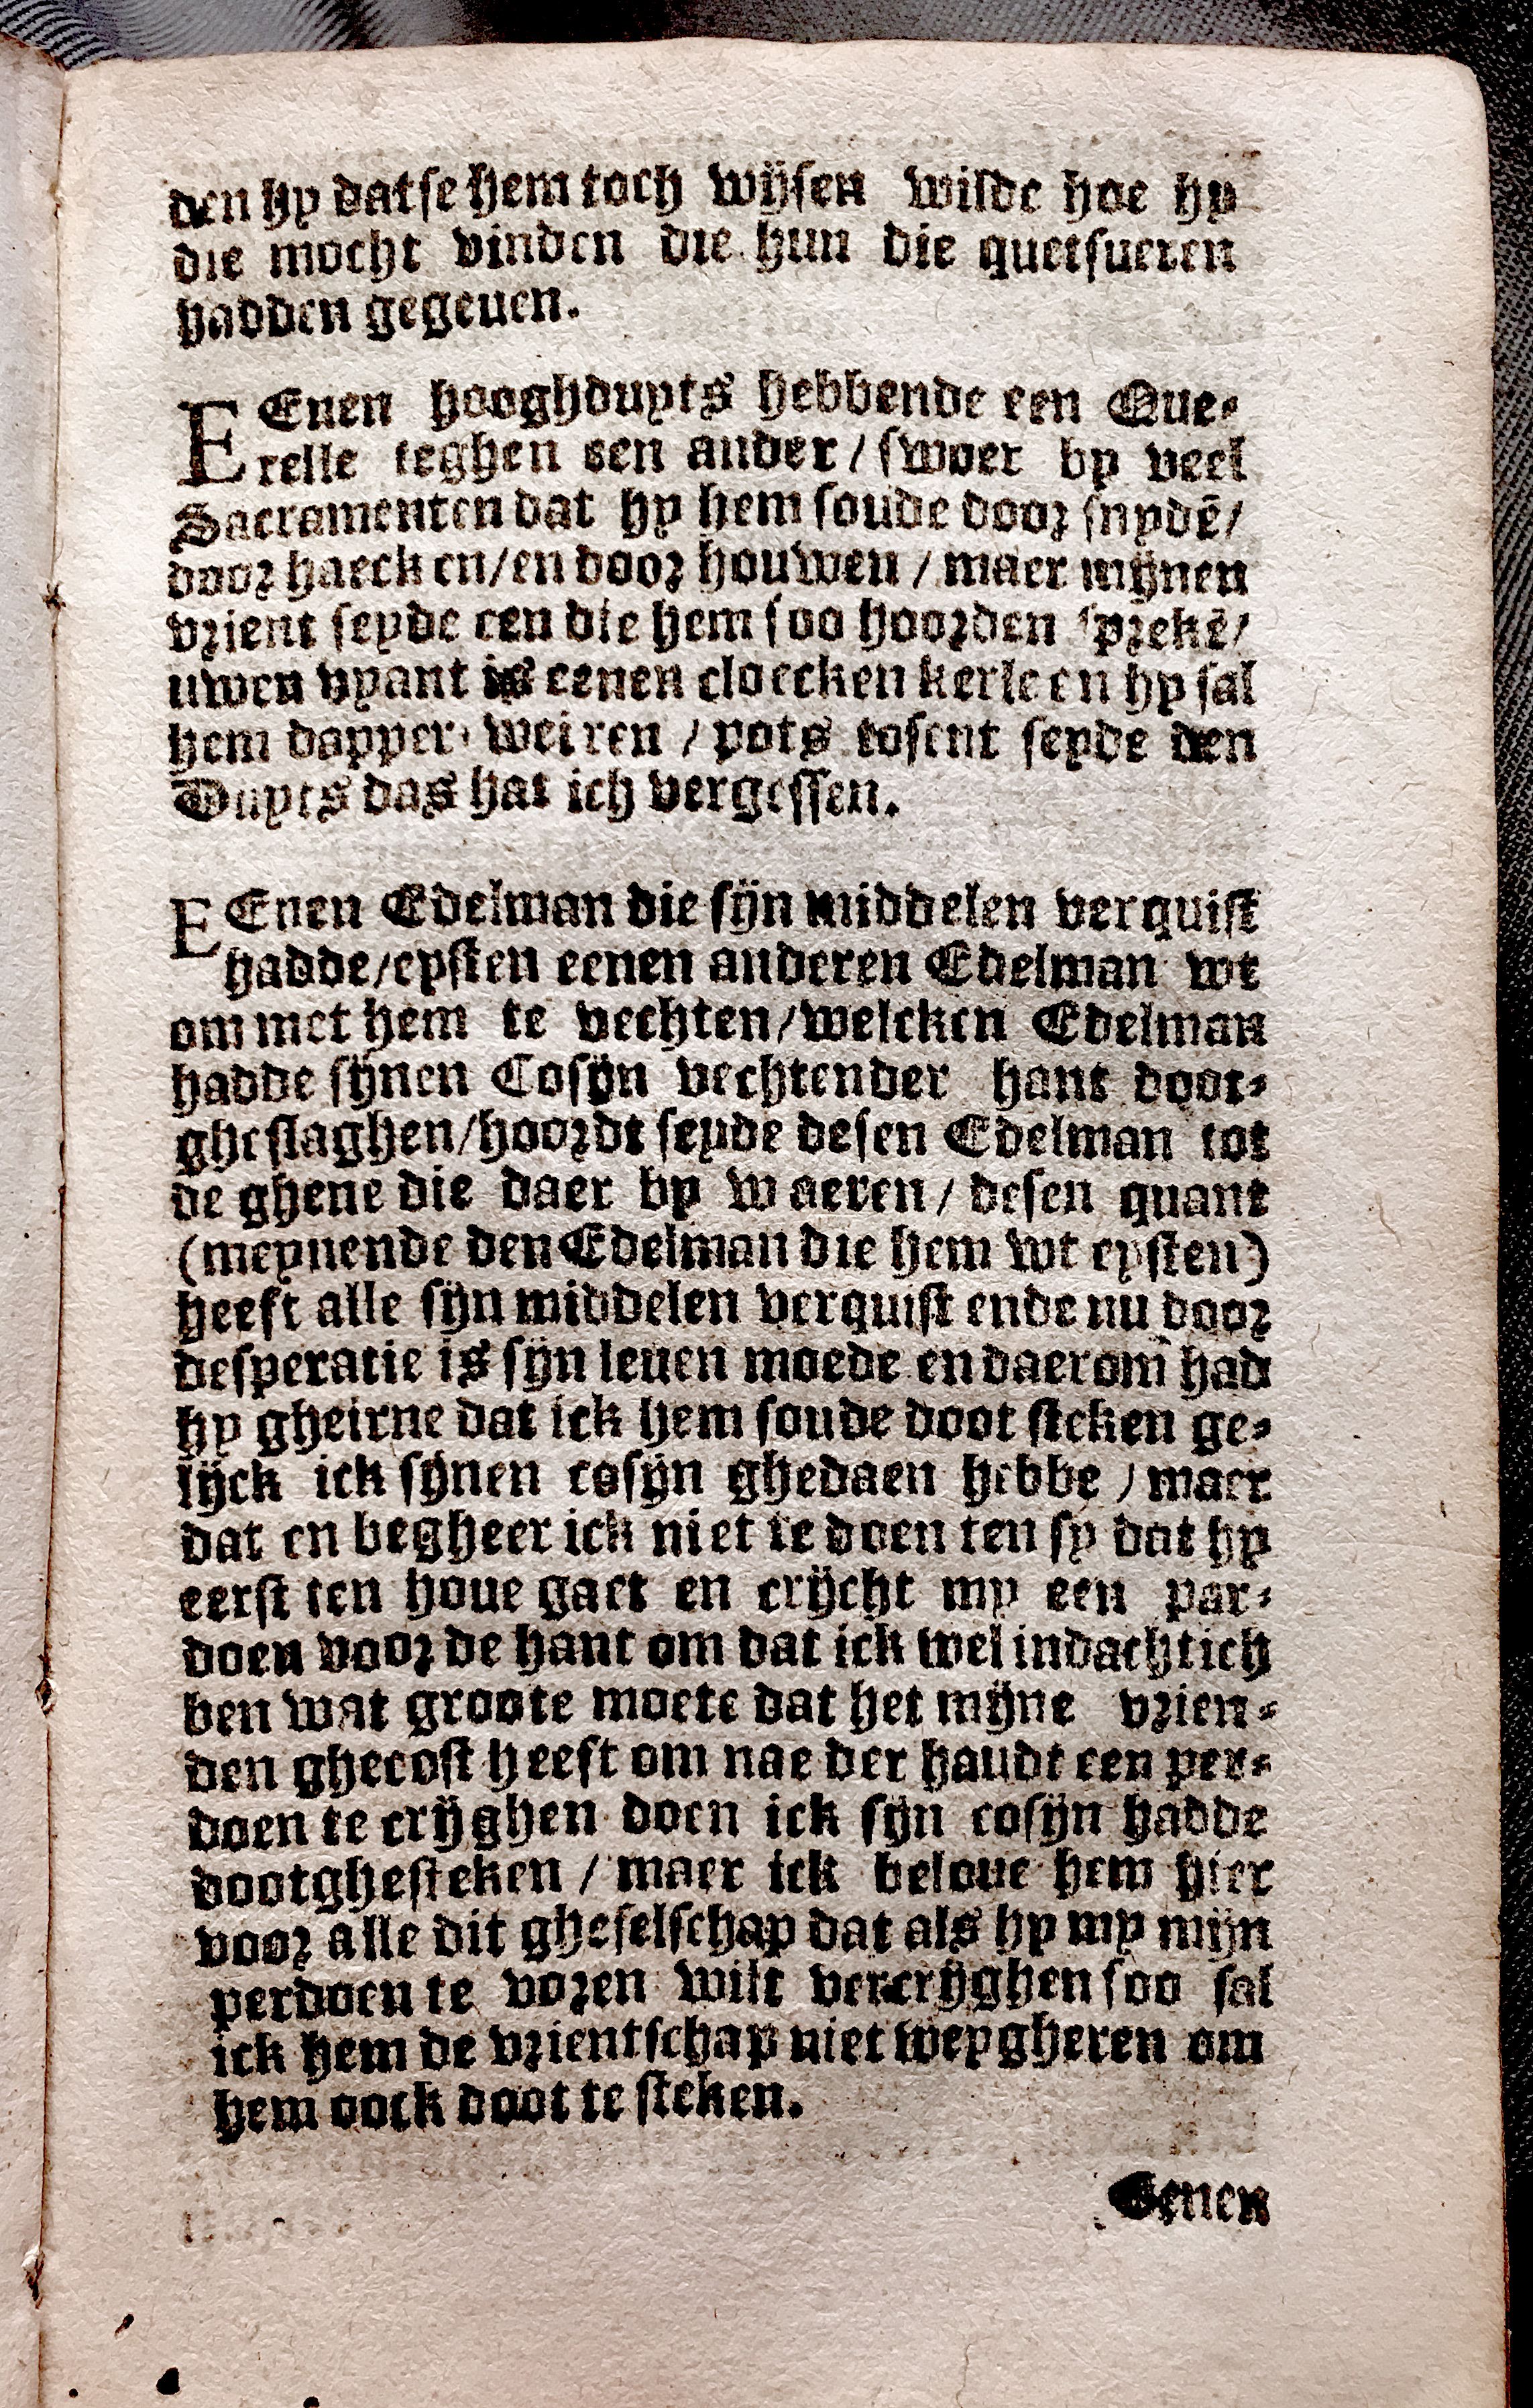 den hy datse hem toch wijsen wilde hoe hy
die mocht vinden die hun die quetsueren
hadden gegeuen.
EEnen hooghduyts hebbende een Que-
relle teghen een ander / swoer by veel
Sacramenten dat hy hem soude door snydē/
door haecken/en door houwen / maer mijnen
vrient seyde een die hem soo hoorden sprekē/
uwen vyant is eenen cloecken kerle en hy sal
hem dapper weiren / pots tosent seyde den
Duyts das hat ich vergessen.
EEnen Edelman die sijn middelen verquist
hadde/eysten eenen anderen Edelman wt
om met hem te vechten/welcken Edelman
hadde sijnen Cosijn vechtender hant doot-
gheslaghen/hoordt seyde desen Edelman tot
de ghene die daer by waeren/ desen quant
(meynende den Edelman die hem wt eysten)
heeft alle sijn middelen verquist ende nu door
desperatie is sijn leuen moede en daerom had
hy gheirne dat ick hem soude doot steken ge-
lijck ick sijnen cosijn ghedaen hebbe / maer
dat en begheer ick niet te doen ten sy dat hy
eerst ten houe gaet en crijcht my een par-
doen voor de hant om dat ick wel indachtich
ben wat groote moete dat het mijne vrien-
den ghecost heeft om nae der handt een per-
doen te crijghen doen ick sijn cosijn hadde
dootghesteken / maer ick beloue hem hier
voor alle dit gheselschap dat als hy my mijn
perdoen te voren wilt vercrijghen soo sal
ick hem de vrientschap niet weygheren om
hem oock doot te steken.
Eenen